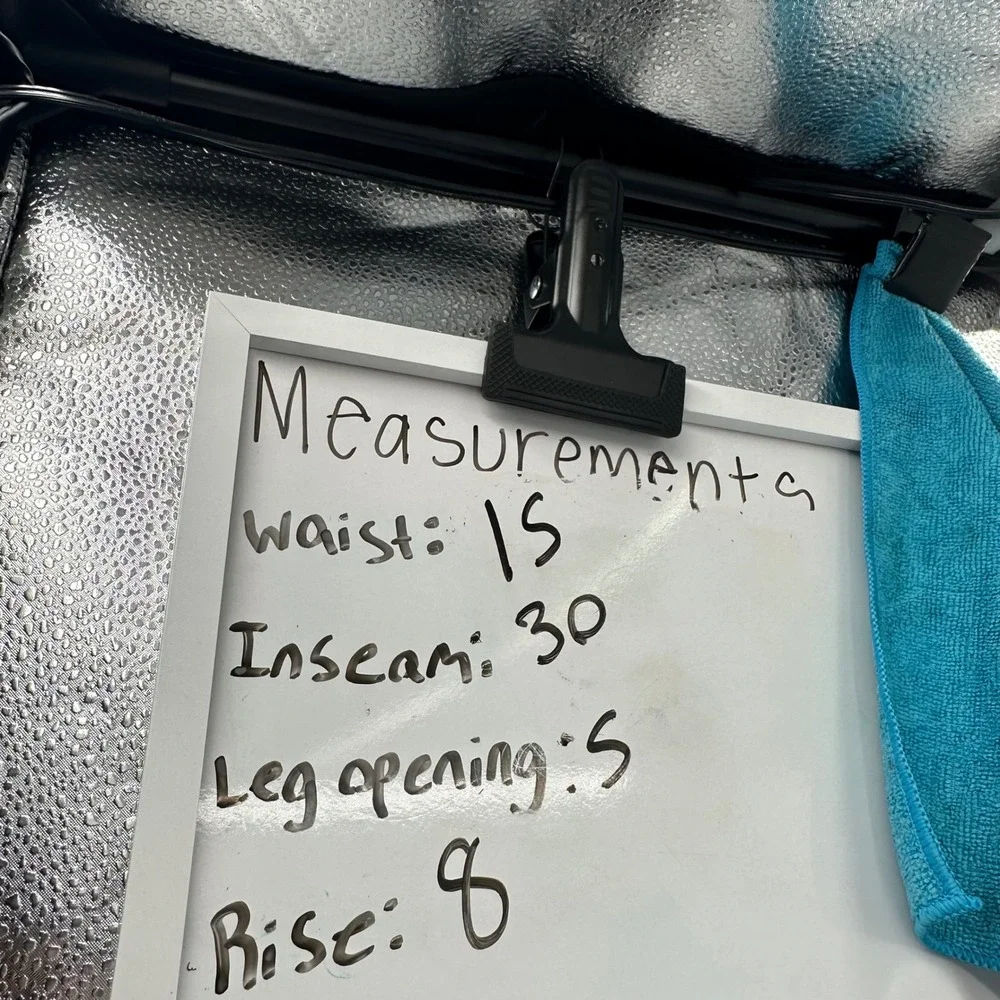 Measurements
Waist: 15
Inseam: 30
Leg opening: 5
Rise: 8